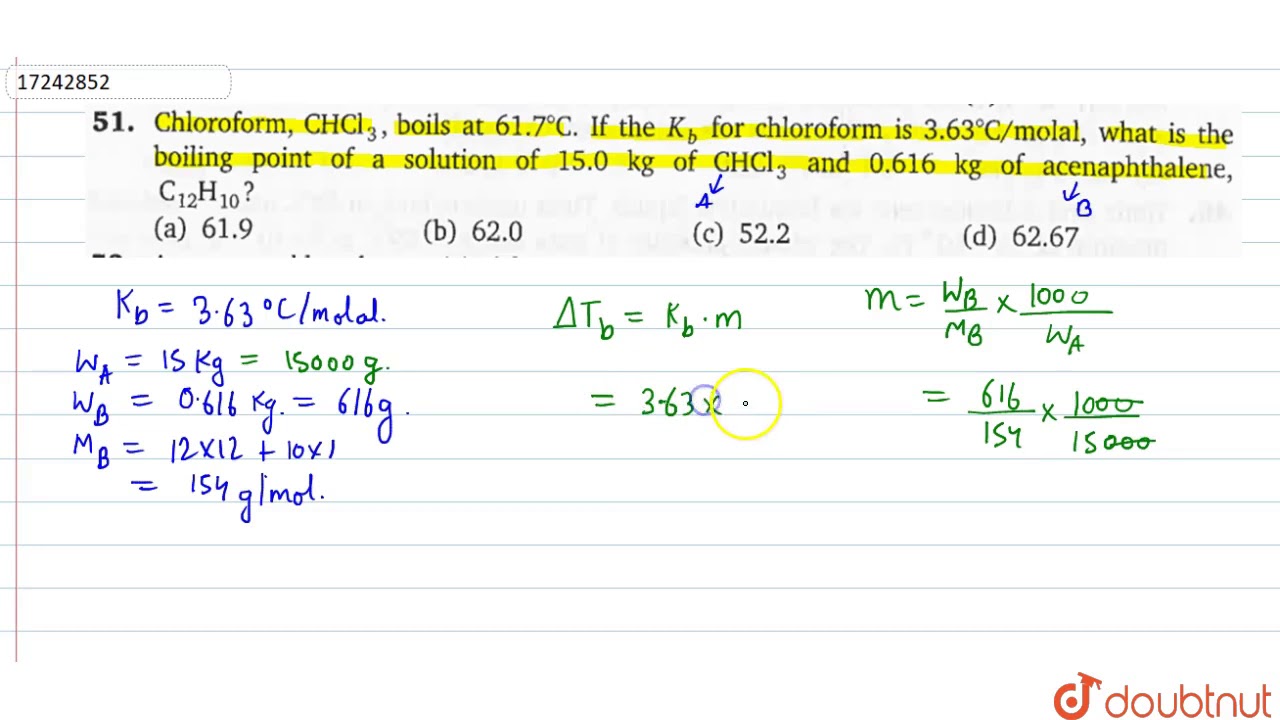 17242852
51. Chloroform, CHCl₃, boils at 61.7°C. If the K_b for chloroform is 3.63°C/molal, what is the
boiling point of a solution of 15.0 kg of CHCl₃ and 0.616 kg of acenaphthalene,
C₁₂H₁₀?
A
B
(a) 61.9 (b) 62.0 (c) 52.2 (d) 62.67
K_b = 3.63 °C/molal.
W_A = 15 Kg = 15000 g.
W_B = 0.616 Kg. = 616 g.
M_B = 12×12 + 10×1
= 154 g/mol.
ΔT_b = K_b · m
= 3.63 ×
m = W_B/M_B × 1000/W_A
= 616/154 × 1000/15000
doubtnut